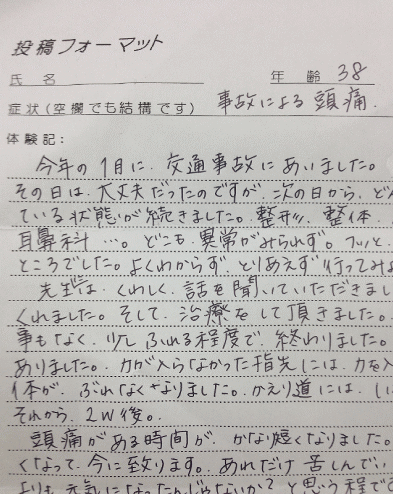 投稿フォーマット
氏 名 年 齢 38
症状(空欄でも結構です) 事故による頭痛.
体験記:
今年の1月に、交通事故にあいました。
その日は、大丈夫だったのですが、次の日から、ど
ている状態が続きました。整形、整体、
耳鼻科…。どこも、異常がみられず。フッと、
ところでした。よくわからず、とりあえず行ってみよ
先生は、くわしく、話を聞いていただきまし
くれました。そして、治療をして頂きました。
事もなく、少しふれる程度で、終わりました。
ありました。力が入らなかった指先には、力を入
体が、ぶれなくなりました。かえり道には、
それから、2W後。
頭痛がある時間が、かなり短くなりました。
くなって、今に致ります。あれだけ苦しんでい
よりも元気になったんじゃないか?と思う程で